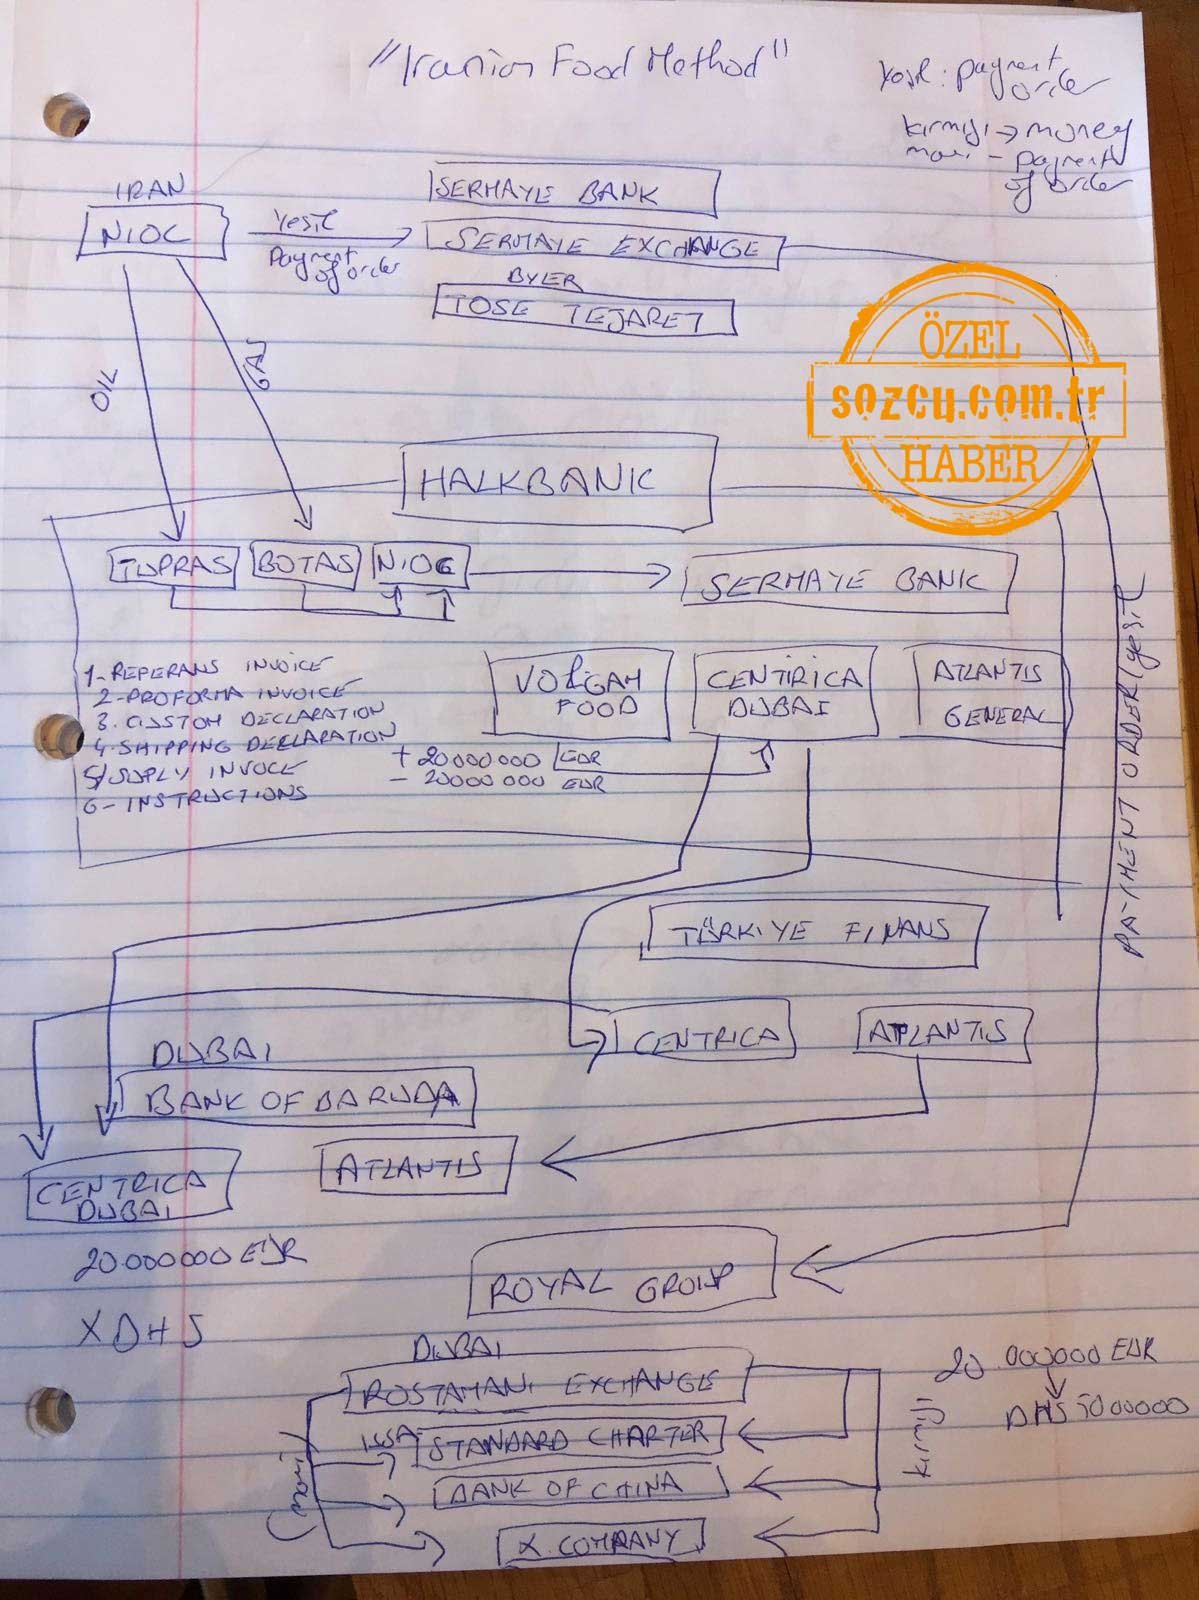 "Iranian Food Method"
Yesil: payment
order
kırmızı → money
mavi - payment
of order
IRAN
NIOC
Yesil
Payment
of order
SERMAYE BANK
SERMAYE EXCHANGE
BYER
TOSE TEJARET
ÖZEL
sozcu.com.tr
HABER
OIL
GAS
HALKBANK
TUPRAS
BOTAS
NIOC
SERMAYE BANK
1-REPERANS INVOICE
2-PROFORMA INVOICE
3. CUSTOM DECLARATION
4. SHIPPING DECLARATION
5/SUPLY INVOCE
6-INSTRUCTIONS
VOLGAM
FOOD
+20000000 EUR
-20000000 EUR
CENTIRICA
DUBAI
ATLANTIS
GENERAL
PAYMENT ORDER (yesil
TÜRKIYE FINANS
CENTRICA
ATLANTIS
DUBAI
BANK OF BARUDA
CENTRICA
DUBAI
ATLANTIS
20.000000 EUR
X DHS
ROYAL GROUP
DUBAI
ROSTAMANI EXCHANGE
STANDARD CHARTER
BANK OF CHINA
X. COMPANY
(mavi)
kırmızı
20.000000 EUR
DHS 5000000